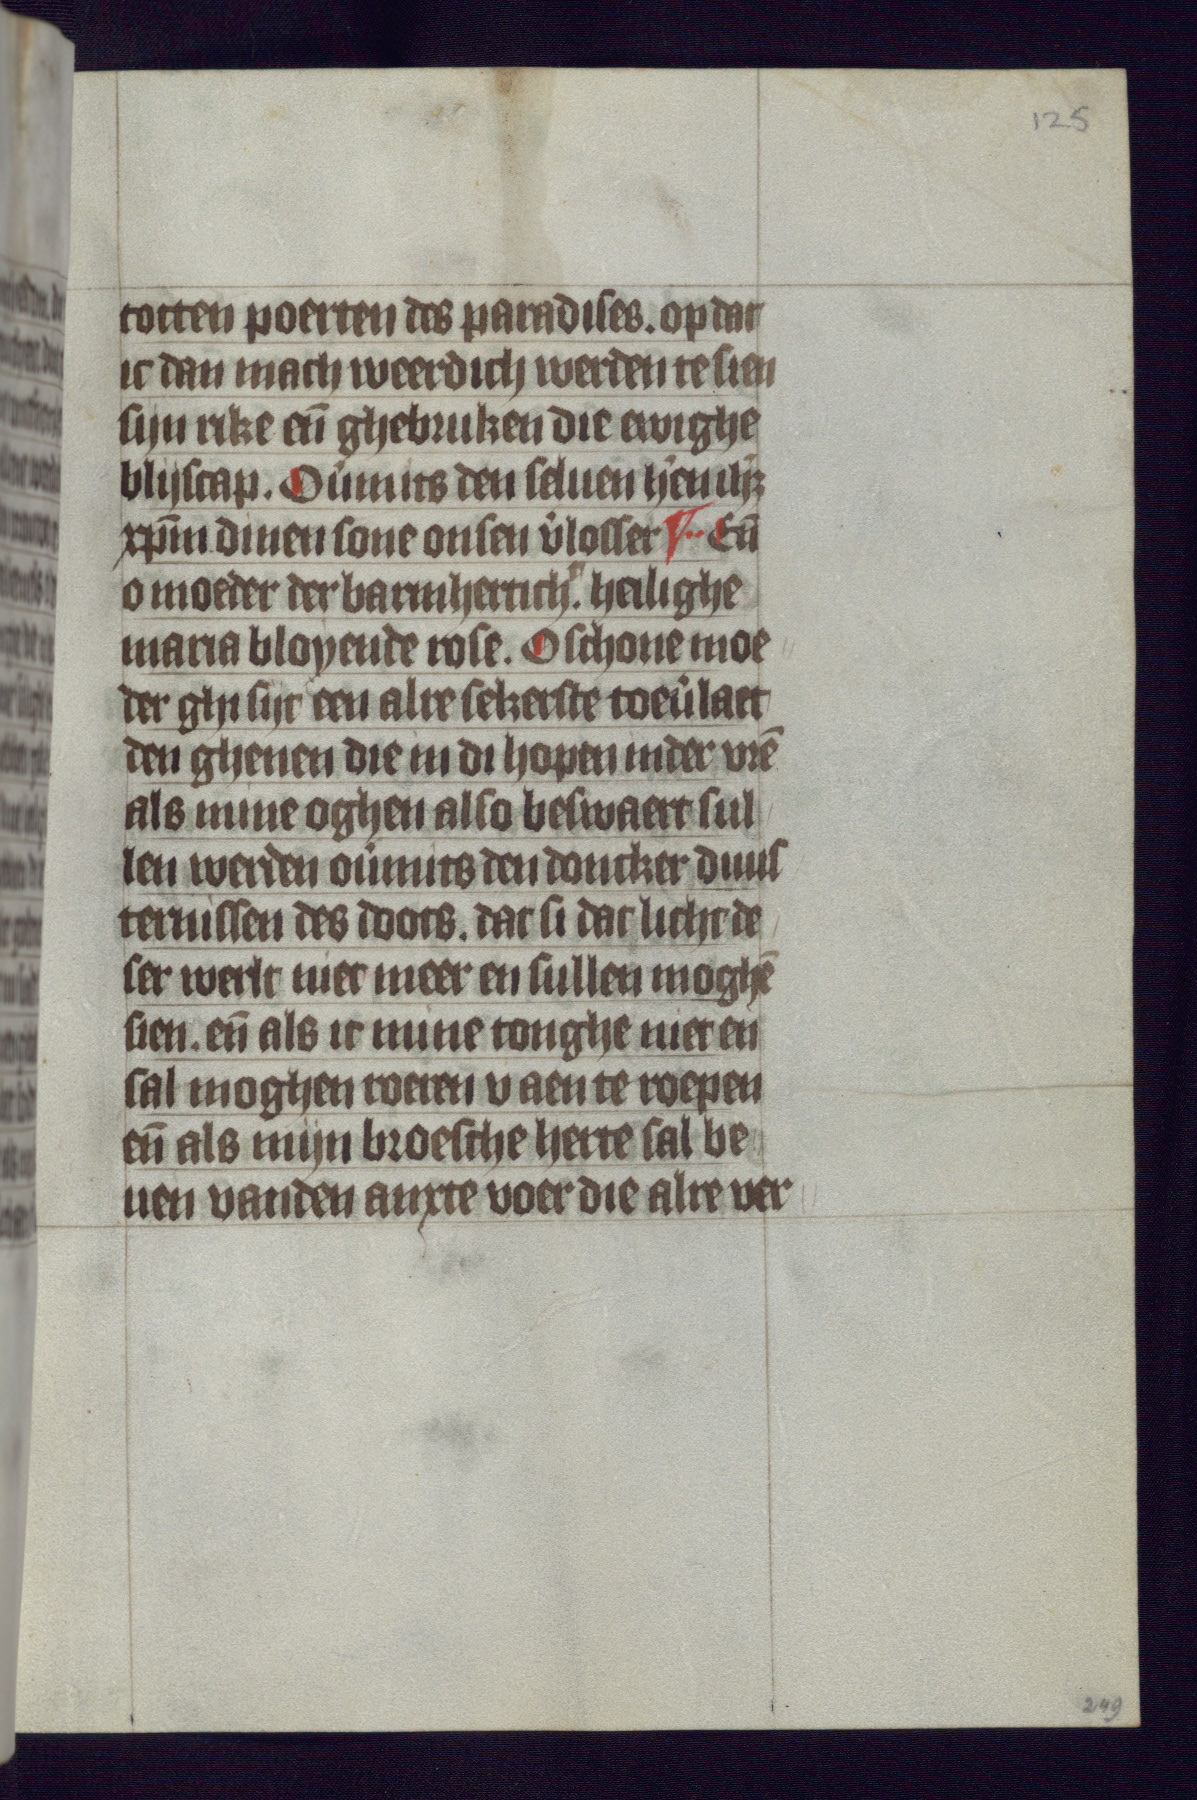 125
totten poerten des paradises. op dat
ic dan mach weerdich werden te sien
sijn rike eñ ghebruken die ewighe
blijscap. Ou̾mits den seluen h̾en ih̾ꝫ
xp̄m dinen sone onsen v̾losser Eñ
o moeder der barmhertich̾. heilighe
maria bloyende rose. O schone moe
der ghi sijt een alre sekerste toeu̾laet
den ghenen die in di hopen inder vrē
als mine oghen also beswaert sul
len werden ou̾mits den doncker duus
ternissen des doots. dat si dat licht de
ser werlt niet meer en sullen moghē
sien. eñ als ic mine tonghe niet en
sal moghen roeren v aen te roepen
eñ als mijn broesche herte sal be
uen vanden anxte voer die alre ver
249